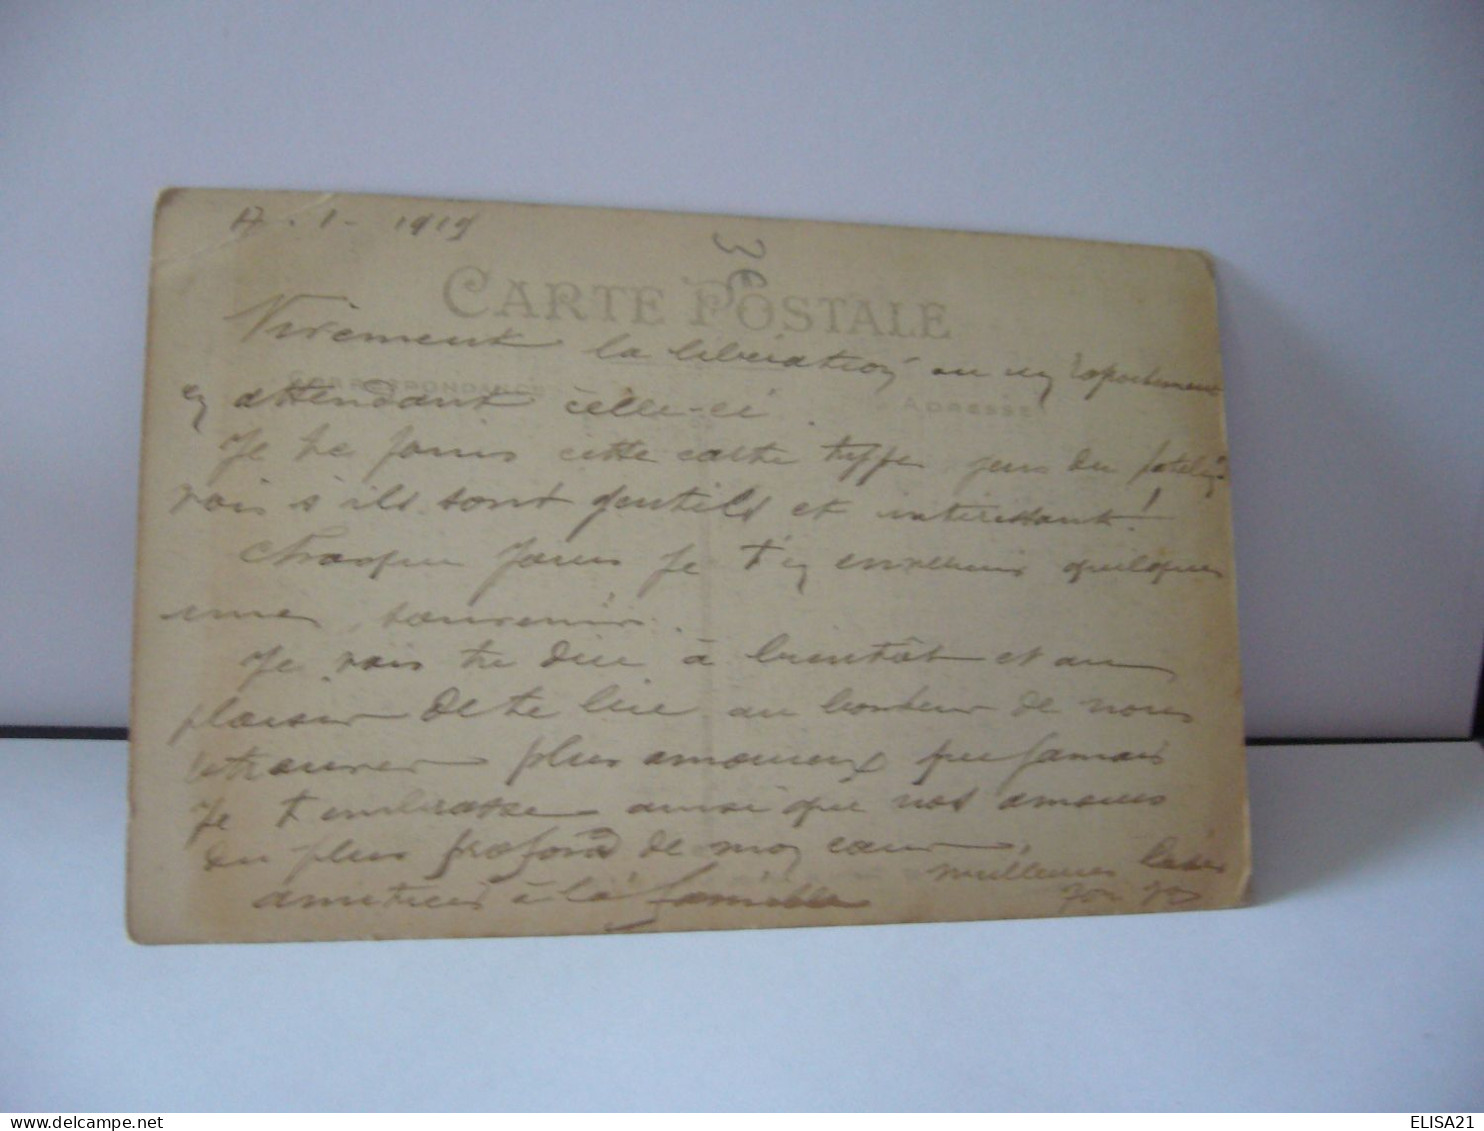 1919
CARTE POSTALE
Vivement la libération ou un
CORRESPONDANCE ADRESSE
en attendant celle-ci.
Je te joins cette carte type
vois s'ils sont gentils et intéressant!
Chaque jours je t'en enverrais quelques
unes, souvenir.
Je vais te dire à bientôt et au
plaisir de te lire au bonheur de nous
retrouver plus amoureux que jamais
Je t'embrasse ainsi que nos amours
du plus profond de mon cœur,
amitiés à la famille
meilleures baisers
Ton
ELISA21